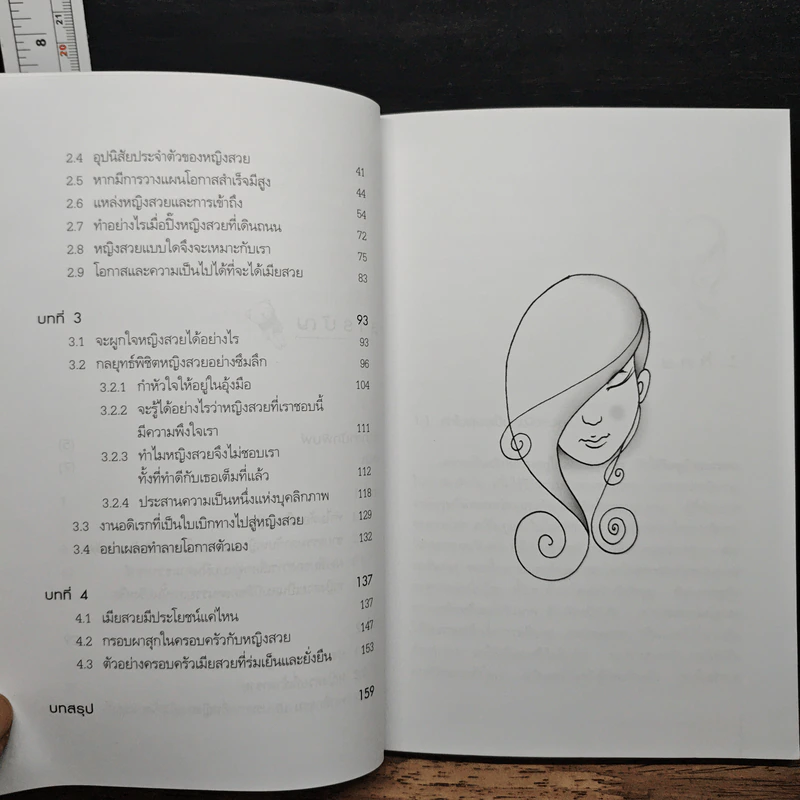 8
21
20
2.4 อุปนิสัยประจำตัวของหญิงสวย 41
2.5 หากมีการวางแผนโอกาสสำเร็จมีสูง 44
2.6 แหล่งหญิงสวยและการเข้าถึง 54
2.7 ทำอย่างไรเมื่อปิ๊งหญิงสวยที่เดินถนน 72
2.8 หญิงสวยแบบใดจึงจะเหมาะกับเรา 75
2.9 โอกาสและความเป็นไปได้ที่จะได้เมียสวย 83
บทที่ 3 93
3.1 จะผูกใจหญิงสวยได้อย่างไร 93
3.2 กลยุทธ์พิชิตหญิงสวยอย่างซึมลึก 96
3.2.1 กำหัวใจให้อยู่ในอุ้งมือ 104
3.2.2 จะรู้ได้อย่างไรว่าหญิงสวยที่เราชอบนี้
มีความพึงใจเรา 111
3.2.3 ทำไมหญิงสวยจึงไม่ชอบเรา
ทั้งที่ทำดีกับเธอเต็มที่แล้ว 112
3.2.4 ประสานความเป็นหนึ่งแห่งบุคลิกภาพ 118
3.3 งานอดิเรกที่เป็นใบเบิกทางไปสู่หญิงสวย 129
3.4 อย่าเผลอทำลายโอกาสตัวเอง 132
บทที่ 4 137
4.1 เมียสวยมีประโยชน์แค่ไหน 137
4.2 กรอบผาสุกในครอบครัวกับหญิงสวย 147
4.3 ตัวอย่างครอบครัวเมียสวยที่ร่มเย็นและยั่งยืน 153
บทสรุป 159